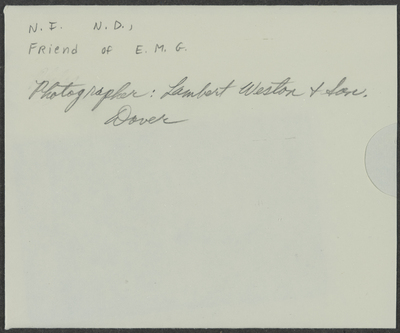 N. I. N. D.,
Friend of E. M. G.
Photographer: Lambert Weston & Son.
Dover